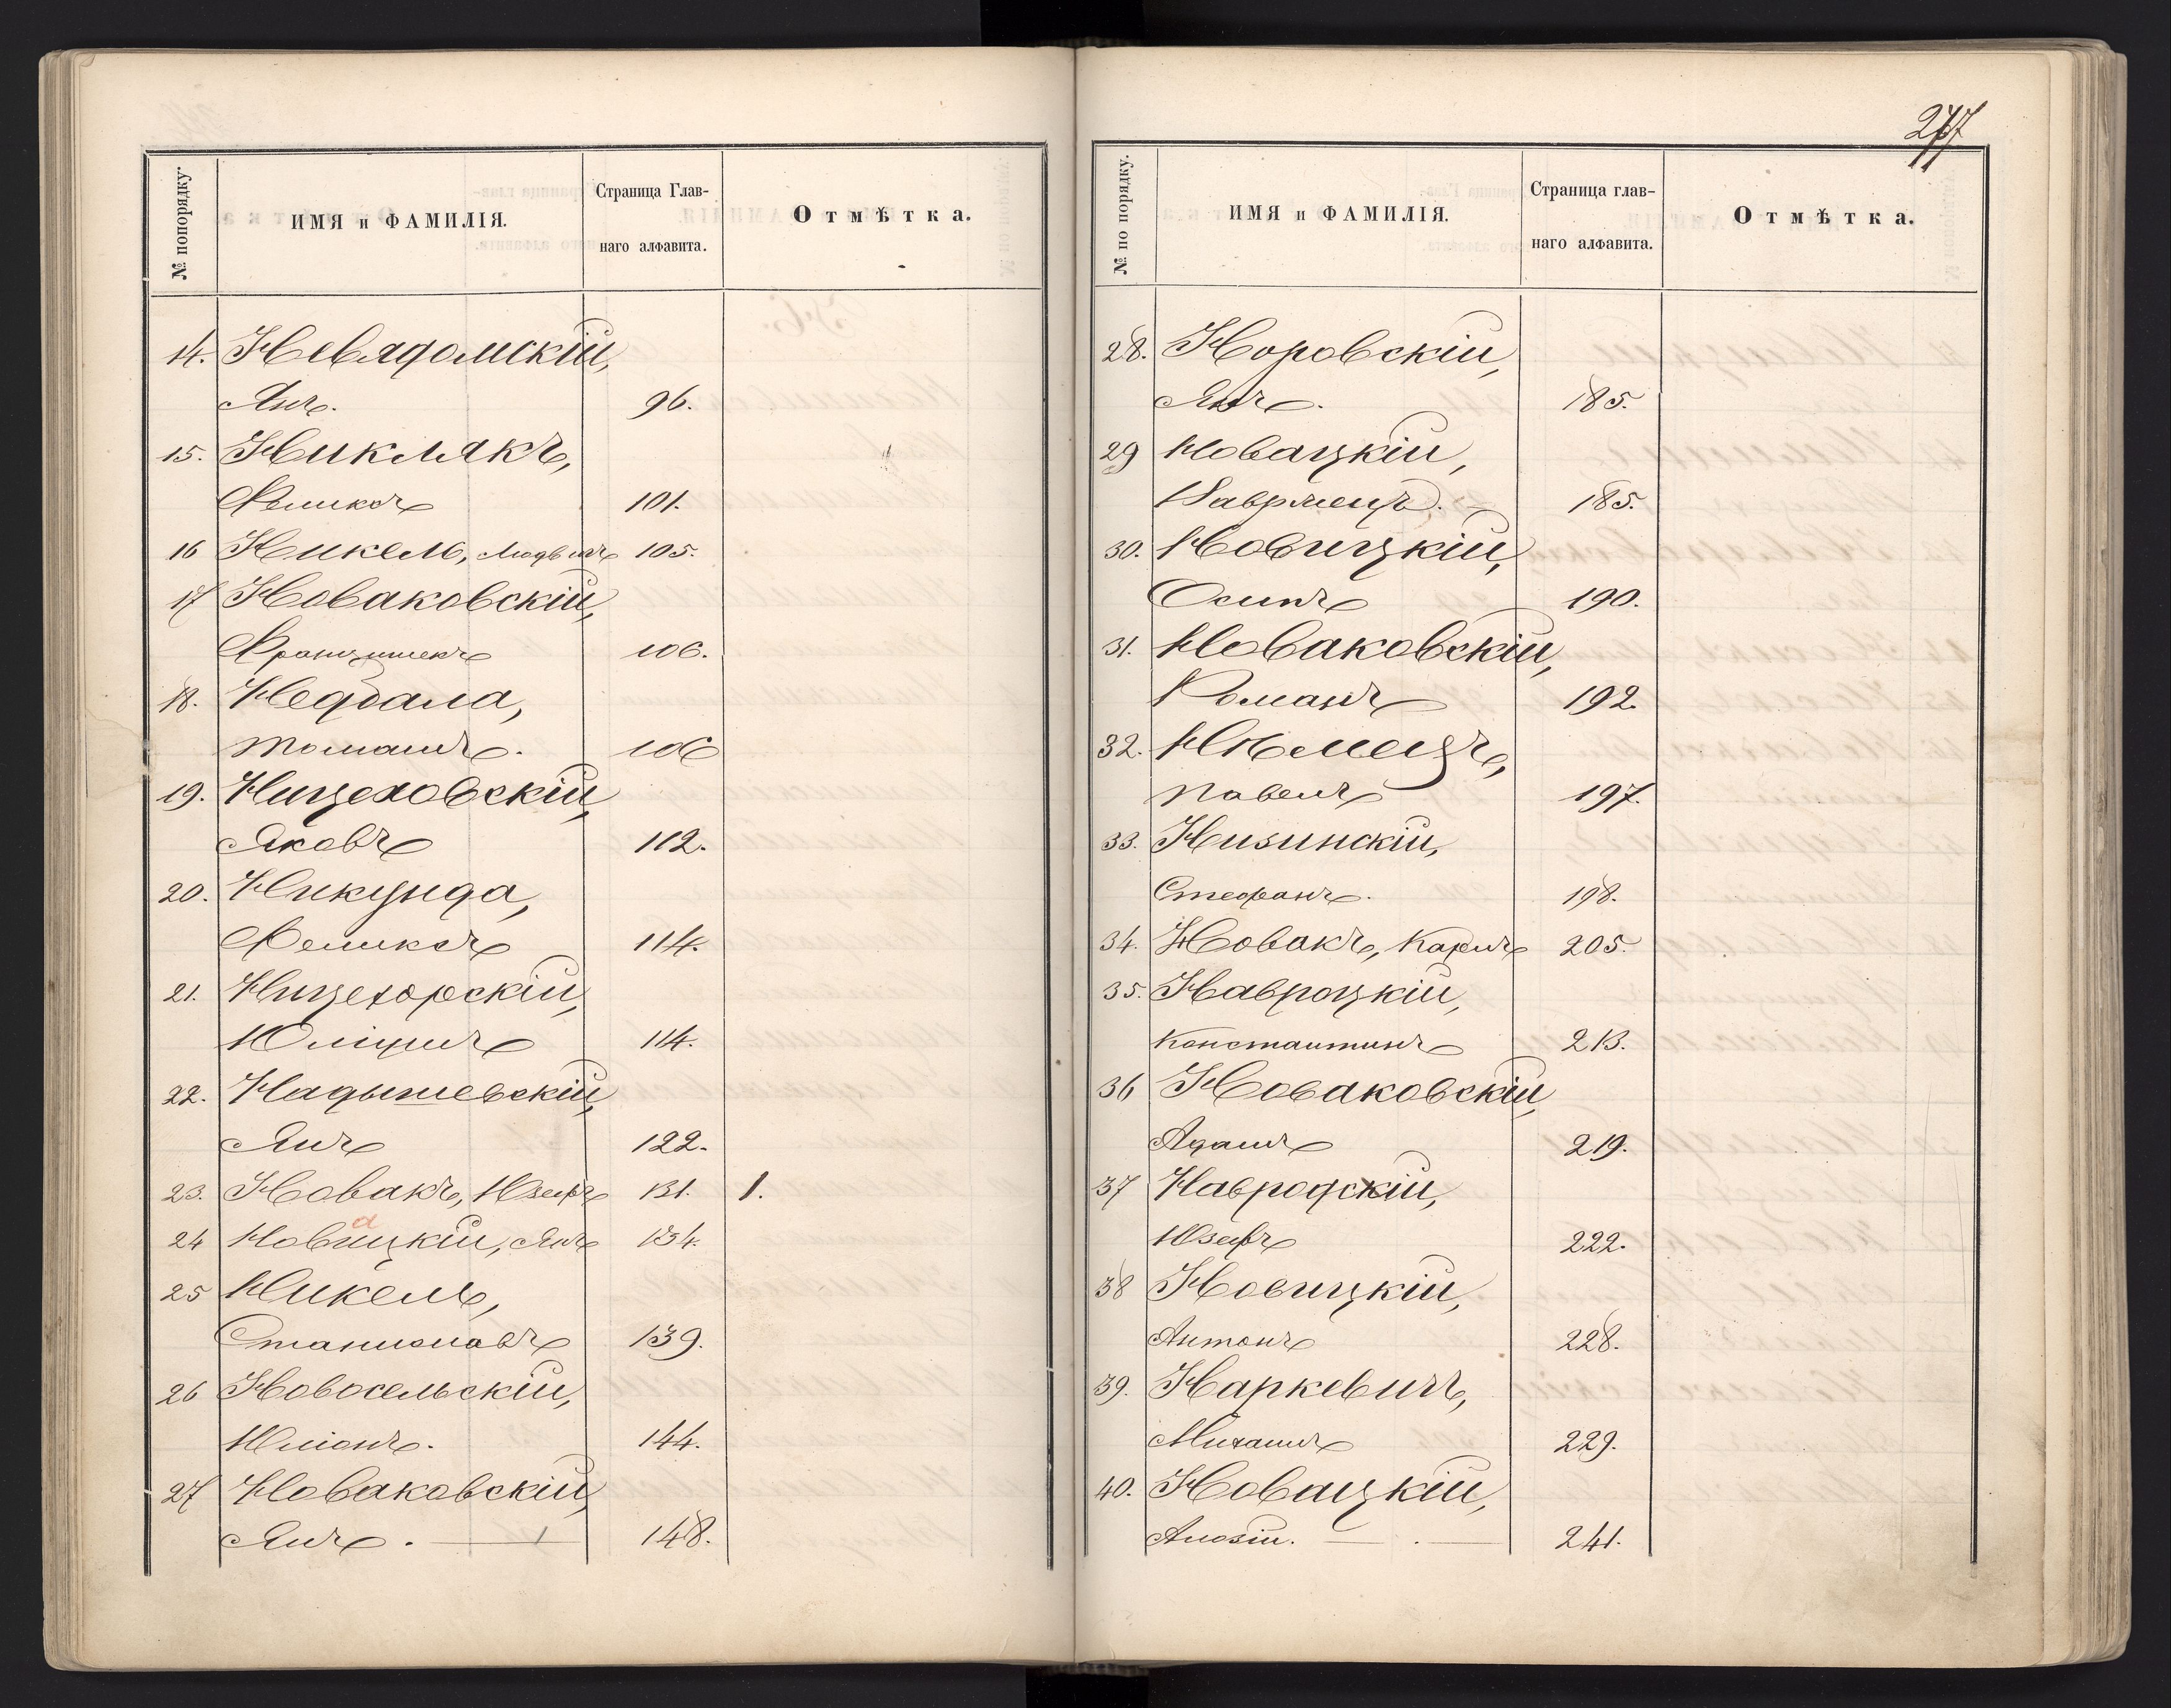 № попорядку.
ИМЯ и ФАМИЛІЯ.
Страница Глав-
наго алфавита.
Отмѣтка.
14. Невядомскій,
Янъ. 96.
15. Никлякъ,
Феликсъ 101.
16 Никель, Людвигъ 105.
17 Новаковскій,
Францишекъ 106.
18. Недбала,
Томашъ. 106
19. Ницеховскій,
Яковъ 112.
20. Никунда,
Феликсъ 114.
21. Ницегорскій,
Юліушъ 114.
22. Надышевскій,
Янъ 122.
23. Новакъ, Юзефъ 131. 1.
а
24 Новицкій, Янъ 134.
25 Никель,
Станиславъ 139.
26 Новосельскій,
Юліанъ. 144.
27 Новаковскій,
Янъ. 148.
277
№ по порядку.
ИМЯ и ФАМИЛІЯ.
Страница глав-
наго алфавита.
Отмѣтка.
28. Норовскій,
Янъ. 185.
29 Новацкій,
Вавржецъ. 185.
30. Новицкій,
Осипъ 190.
31. Новаковскій,
Романъ 192.
32. Нѣмецъ,
Павелъ 197.
33. Низинскій,
Стефанъ. 198.
34. Новакъ, Карлъ 205.
35. Навроцкій,
Константинъ 213.
36 Новаковскій,
Адамъ 219.
37 Навродскій,
Юзефъ 222.
38 Новицкій,
Антонъ 228.
39. Наркевичъ,
Михаилъ 229.
40. Новацкій,
Алозій. 241.